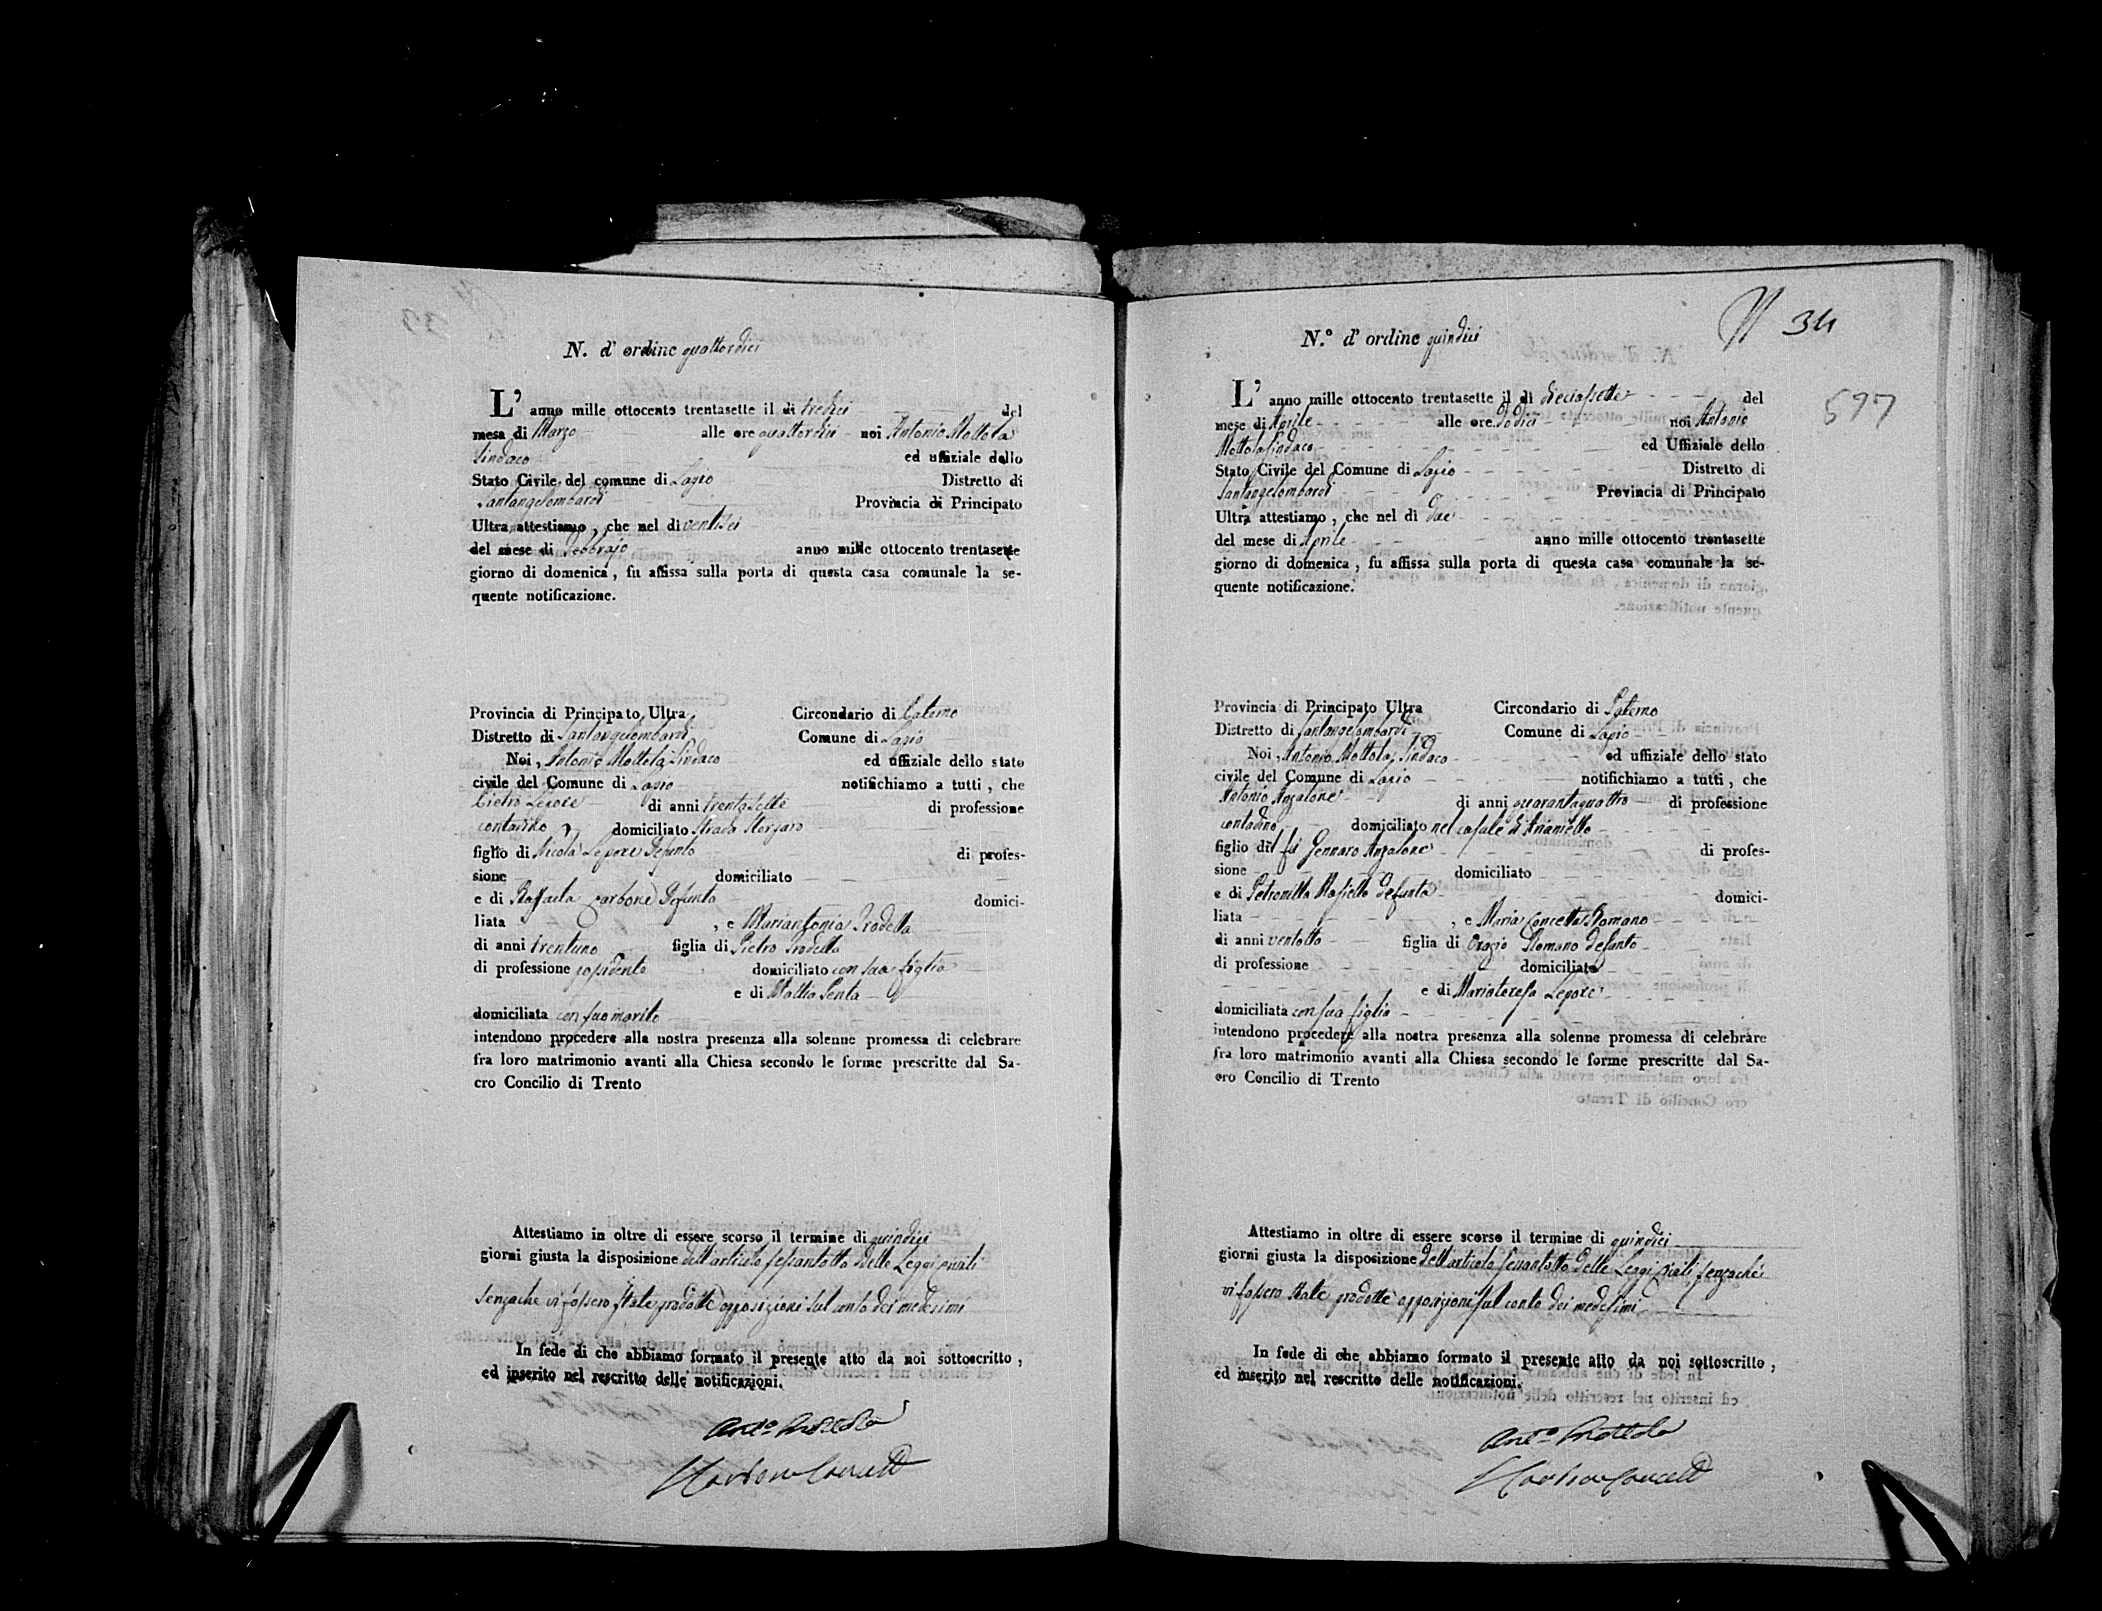 N. d' ordine quattordici
L' anno mille ottocento trentasette il di tredici del
mese di Marzo alle ore quattordici noi Antonio Mottola
Sindaco ed uffiziale dello
Stato Civile del comune di Lapio Distretto di
Santangelombardi Provincia di Principato
Ultra attestiamo, che nel dì ventisei
del mese di Febbrajo anno mille ottocento trentasette
giorno di domenica, fu affissa sulla porta di questa casa comunale la se-
quente notificazione.
Provincia di Principato Ultra Circondario di Paterno
Distretto di Santangelombardi Comune di Lapio
Noi, Antonio Mottola Sindaco ed uffiziale dello stato
civile del Comune di Lapio notifichiamo a tutti, che
Pietro Lepore di anni trentasette di professione
contadino domiciliato Strada
figlio di Nicola Lepore defunto di profes-
sione domiciliato
e di Raffaela Carbone defunta domici-
liata , e Mariantonia Trodella
di anni trentuno figlia di Pietro Trodella
di professione possidente domiciliato con sua figlia
e di Mattia Penta
domiciliata con suo marito
intendono procedere alla nostra presenza alla solenne promessa di celebrare
fra loro matrimonio avanti alla Chiesa secondo le forme prescritte dal Sa-
cro Concilio di Trento
Attestiamo in oltre di essere scorso il termine di quindici
giorni giusta la disposizione dell'articolo sessantotto delle Leggi civili
senzache vi fossero state prodotte opposizioni sul conto dei medesimi
In fede di che abbiamo formato il presente atto da noi sottoscritto,
ed inserito nel rescritto delle notificazioni.
Ant.o Mottola
N.° d' ordine quindici
34
597
L' anno mille ottocento trentasette il dì diciassette del
mese di Aprile alle ore dodici noi Antonio
Mottola Sindaco ed Uffiziale dello
Stato Civile del Comune di Lapio Distretto di
Santangelombardi Provincia di Principato
Ultra attestiamo, che nel dì due
del mese di Aprile anno mille ottocento trentasette
giorno di domenica, fu affissa sulla porta di questa casa comunale la se-
quente notificazione.
Provincia di Principato Ultra Circondario di Paterno
Distretto di Santangelombardi Comune di Lapio
Noi, Antonio Mottola, Sindaco ed uffiziale dello stato
civile del Comune di Lapio notifichiamo a tutti, che
Antonio Anzalone di anni quarantaquattro di professione
contadino domiciliato nel casale di Arianiello
figlio di fu Gennaro Anzalone di profes-
sione domiciliato
e di Petronilla defunta domici-
liata , e Maria Concetta Romano
di anni ventotto figlia di Orazio Romano defunto
di professione domiciliato
e di Mariateresa Lepore
domiciliata con sua figlia
intendono procedere alla nostra presenza alla solenne promessa di celebrare
fra loro matrimonio avanti alla Chiesa secondo le forme prescritte dal Sa-
cro Concilio di Trento
Attestiamo in oltre di essere scorso il termine di quindici
giorni giusta la disposizione dell'articolo sessantotto delle Leggi civili senzaché
vi fossero state prodotte opposizioni sul conto dei medesimi
In fede di che abbiamo formato il presente atto da noi sottoscritto,
ed inserito nel rescritto delle notificazioni.
Ant.o Mottola